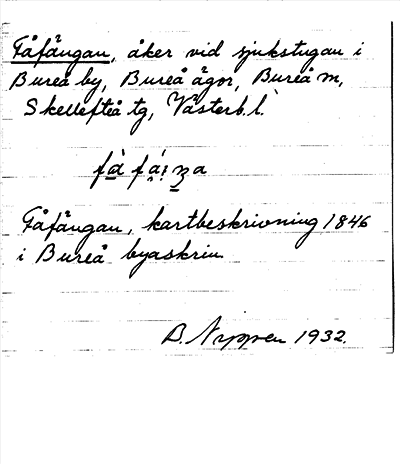 Fåfängan, åker vid sjukstugan i
Bureå by, Bureå ägor, Bureå m,
Skellefteå tg, Västerb. l.
fà fá
Fåfängan, kartbeskrivning 1846
i Bureå byaskrin
1932.